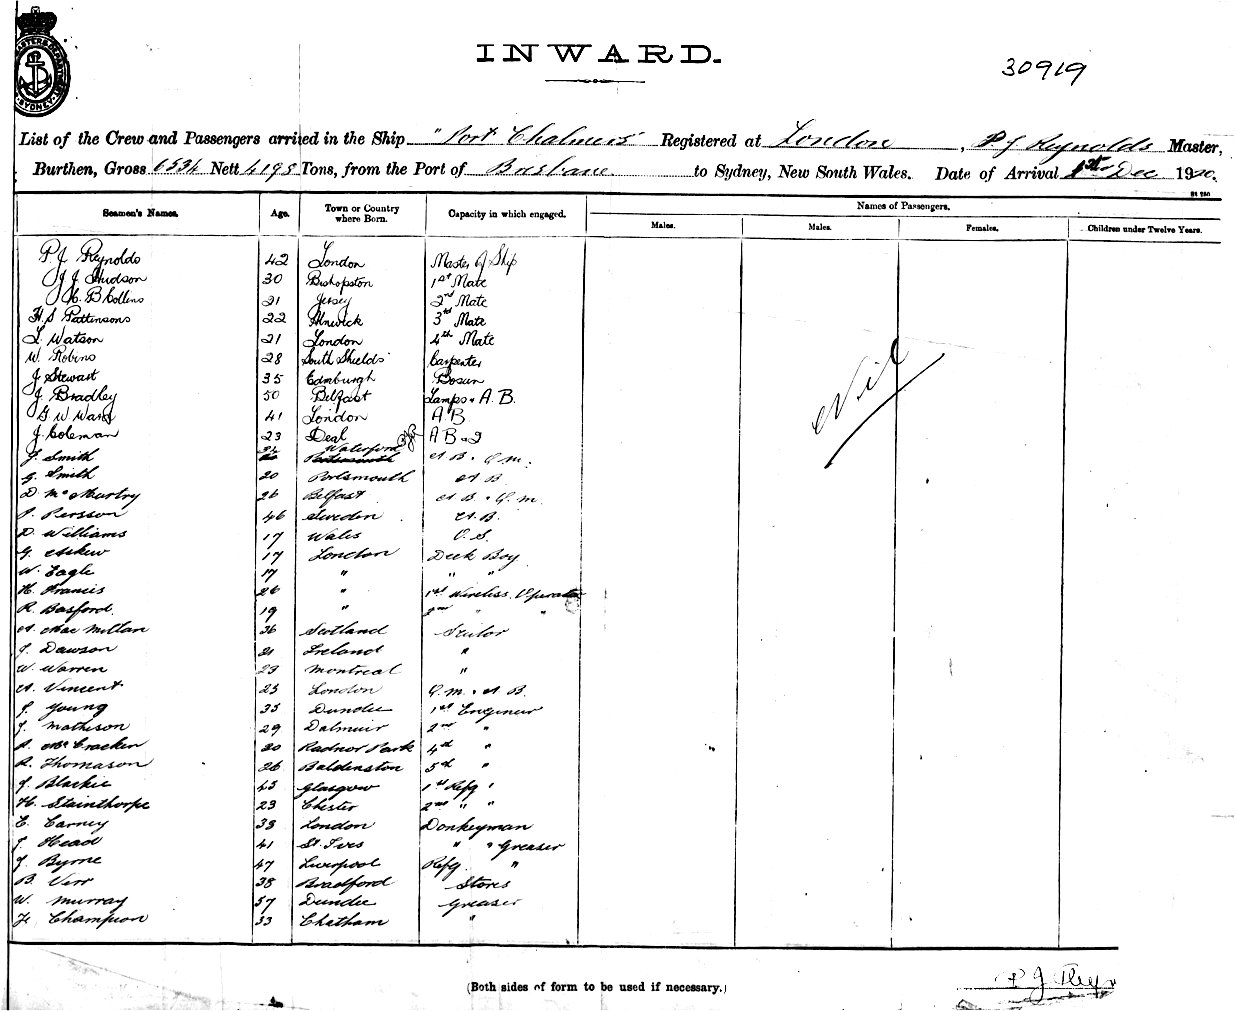 INWARD.
30919
SYDNEY
List of the Crew and Passengers arrived in the Ship "Port Chalmers" Registered at London, P J Reynolds Master,
Burthen, Gross 6534 Nett 4195 Tons, from the Port of Brisbane to Sydney, New South Wales. Date of Arrival 1st Dec 1920.
Seamen's Names. Age. Town or Country where Born. Capacity in which engaged. Names of Passengers.
Males. Males. Females. Children under Twelve Years.
P J Reynolds 42 London Master of Ship
J J Hudson 30 Bishopston 1st Mate
H. B Collins 21 Jersey 2nd Mate
H S Pattinsons 22 Alnwick 3rd Mate
L Watson 21 London 4th Mate
W Robins 28 South Shields Carpenter
J Stewart 35 Edinburgh Bosun
J Bradley 50 Belfast Lamps & A.B.
G W Ward 41 London A B
J Coleman 23 Deal A B
Nil
J. Smith Waterford A B. & Q.M.
G. Smith 20 Portsmouth A B
D. McMurtry 26 Belfast A B. & Q.M.
P. Persson 46 Sweden A.B.
D. Williams 17 Wales O.S.
G. Askew 17 London Deck Boy
W. Eagle 17 " " "
H. Francis 26 " 1st Wireless Operator
R. Basford. 19 " 2nd " "
A MacMillan 36 Scotland Sailor
J. Dawson 21 Ireland "
W. Warren 23 Montreal "
A. Vincent 23 London Q.M. & A B.
J. Young 35 Dundee 1st Engineer
J. Matheson 29 Dalmuir 2nd "
A. McCracken 20 Radnor Park 4th "
R. Thomason 26 Baldenston 5th "
J. Blackie 43 Glasgow 1st Refg "
H. Stainthorpe 23 Chester 2nd " "
E. Carney 38 London Donkeyman
J. Head 41 St. Ives " & Greaser
J Byrne 47 Liverpool Refg. "
B. Verr 38 Bradford Stores
W. Murray 57 Dundee Greaser
F. Champion 33 Chatham "
(Both sides of form to be used if necessary.)
P J Rey